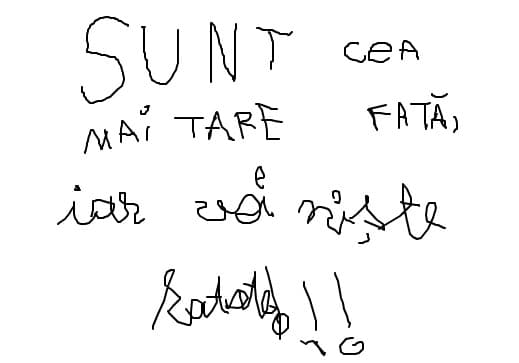 SUNT CEA
MAi TARE FATĂ,
iar voi niște
!!